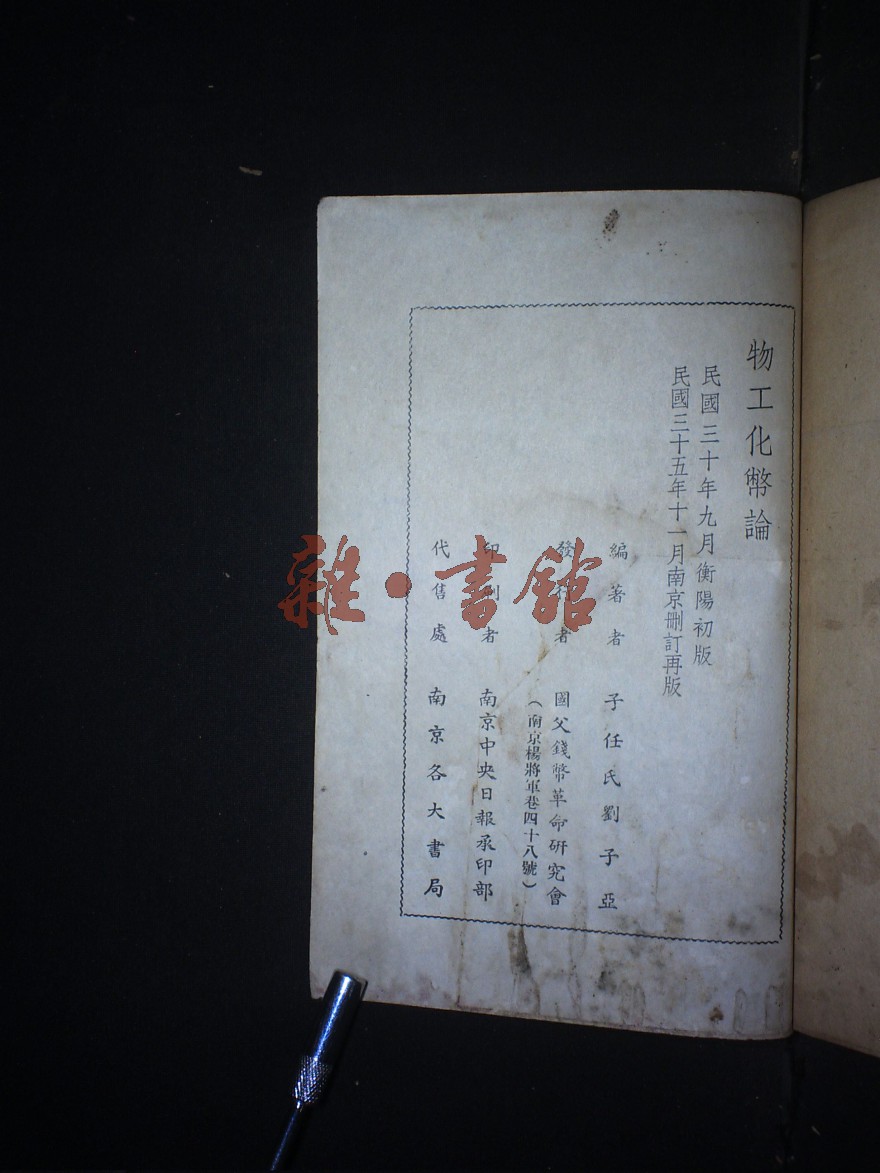 物工化幣論
民國三十年九月衡陽初版
民國三十五年十一月南京刪訂再版
編著者 子任氏劉子亞
發行者 國父錢幣革命研究會
(南京楊將軍巷四十八號)
印刷者 南京中央日報承印部
代售處 南京各大書局
雜·書館